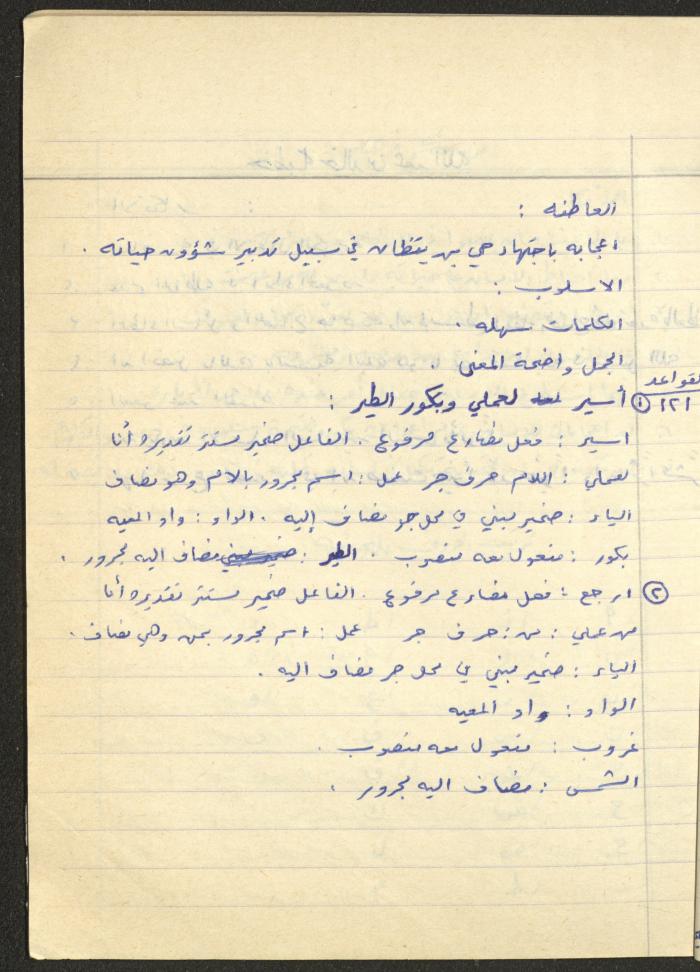 العاطفه :
اعجابه باجتهاد حي بن يقظان في سبيل تدبير شؤون حياته .
الاسلوب :
الكلمات سهله .
الجمل واضحة المعنى .
القواعد
١٢١ ① أسير لعملي وبكور الطير :
اسير : فعل مضارع مرفوع . الفاعل ضمير مستتر تقديره أنا
لعملي : اللام حرف جر عمل : اسم مجرور بالام وهو مضاف
الياء : ضمير مبني في محل جر مضاف إليه . الواو : واو المعيه
بكور : مفعول معه منصوب . الطير : مضاف اليه مجرور .
② ارجع : فعل مضارع مرفوع . الفاعل ضمير مستتر تقديره أنا
من عملي : من : حرف جر عمل : اسم مجرور بمن وهي مضاف .
الياء : ضمير مبني في محل جر مضاف اليه .
الواو : واو المعيه
غروب : مفعول معه منصوب .
الشمس : مضاف اليه مجرور .